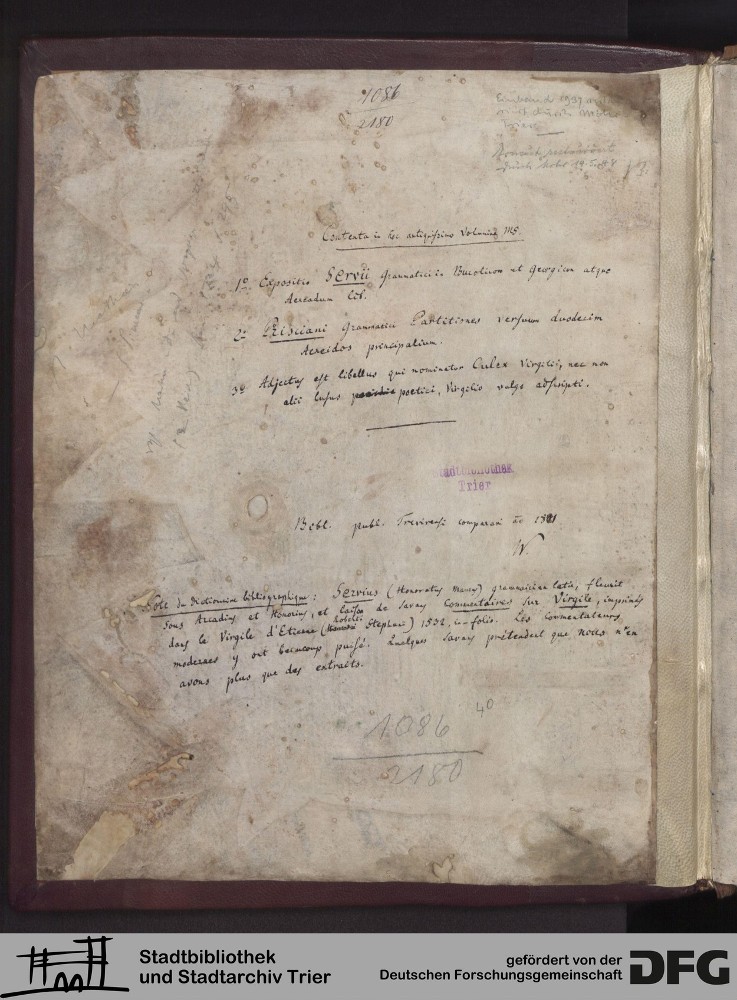 1086
2180
Einband 1931
Trier
Contenta in hoc antiquissimo Volumine MS.
1º Expositio Servii Grammatici in Bucolicon et Georgicon atque
Aeneadum lib.
2º Prisciani Grammatici Partitiones versuum duodecim
Aeneidos principalium.
3º Adjectus est libellus qui nominatur Culex Virgilii, nec non
alii lusus poetici, Virgilio vulgo adscripti.
Stadtbibliothek
Trier
Bibl. publ. Trevirensi comparavi
W.
Note du Dictionnaire bibliographique: Servius (Honoratus Maurus) grammairien latin, fleurit
sous Arcadius et Honorius, et laissa de savans Commentaires sur Virgile, imprimés
dans le Virgile d'Etienne (Roberti Stephani) 1532, in-folio. Les Commentateurs
modernes y ont beaucoup puisé. Quelques savans prétendent que nous n'en
avons plus que des extraits.
1086 4º
2180
Stadtbibliothek
und Stadtarchiv Trier
gefördert von der
Deutschen Forschungsgemeinschaft
DFG